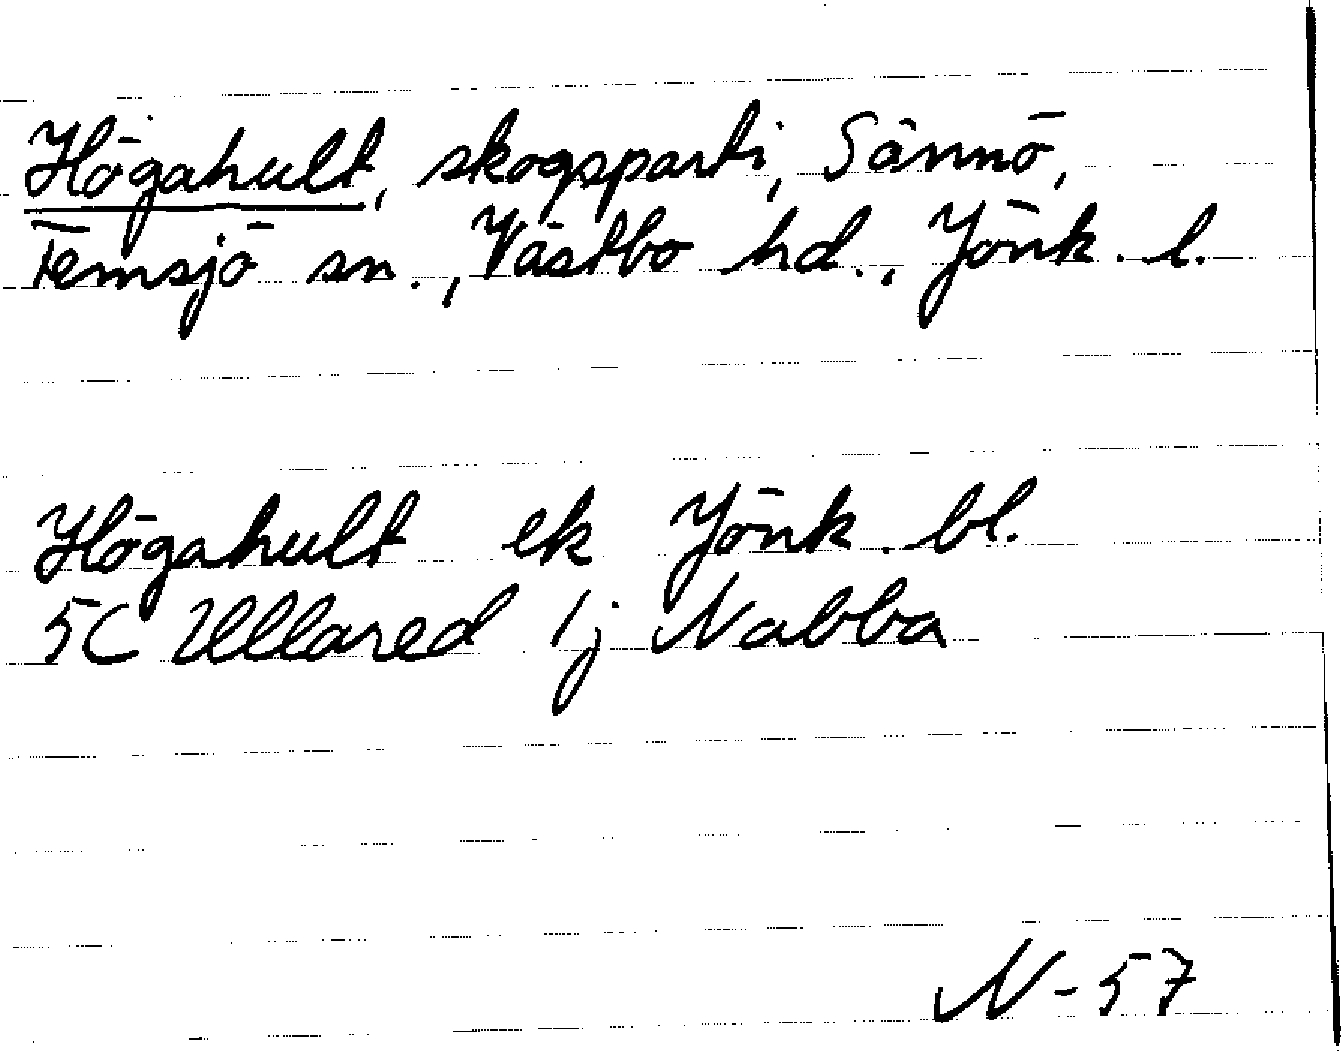 Högahult, skogsparti, Sännö,
Femsjö sn., Västbo hd., Jönk. l.
Högahult ek Jönk. bl.
5C Ullared 1j Nabba
N-57